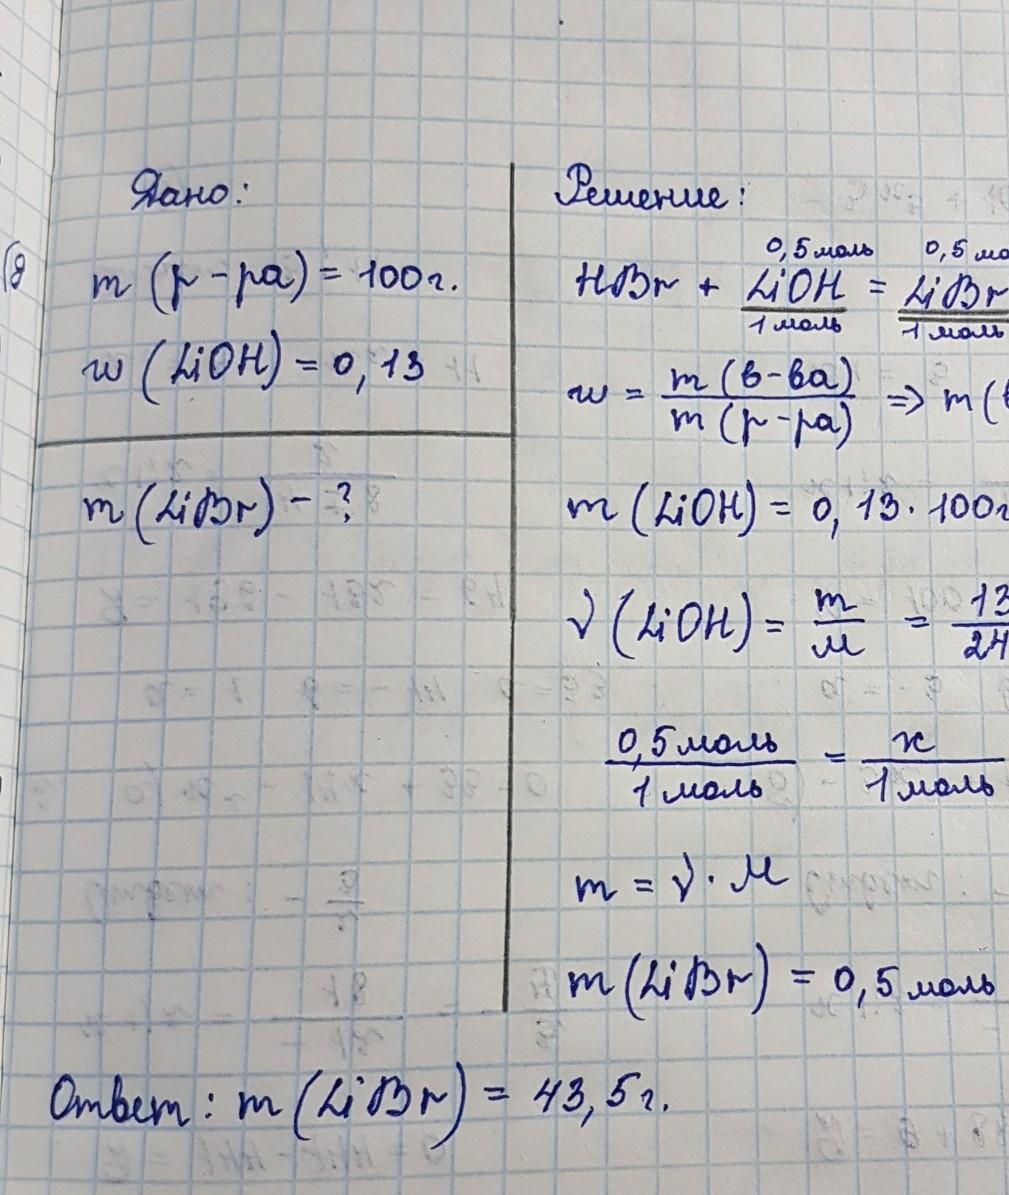 Дано:
m (р-ра) = 100г.
w (LiOH) = 0,13
m (LiBr) - ?
Решение:
0,5 моль 0,5 мо
HBr + LiOH = LiBr
1 моль 1 моль
w = m (в-ва) / m (р-ра) => m (в
m (LiOH) = 0,13 · 100г
ν (LiOH) = m / M = 13 / 24
0,5 моль / 1 моль = x / 1 моль
m = ν · M
m (LiBr) = 0,5 моль
Ответ: m (LiBr) = 43,5г.